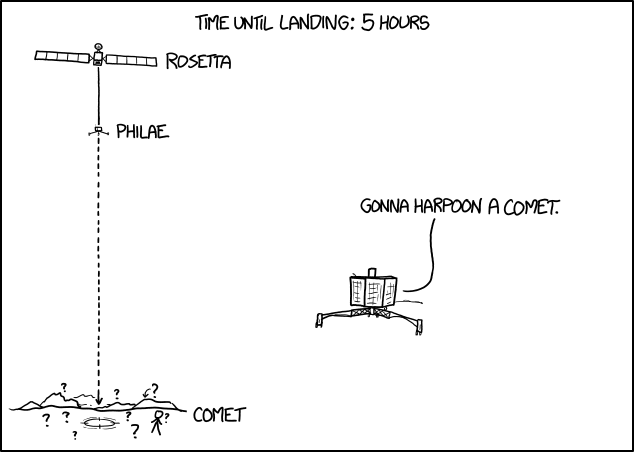 TIME UNTIL LANDING: 5 HOURS
ROSETTA
PHILAE
GONNA HARPOON A COMET.
? ? ?
COMET
? ? ? ?
? ?